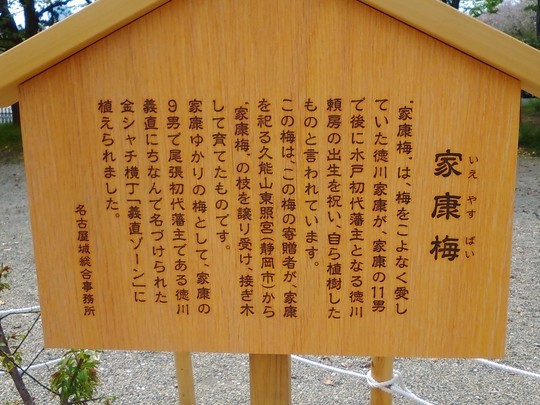 家康梅
いえ やす ばい
〝家康梅〟は、梅をこよなく愛し
ていた徳川家康が、家康の11男
で後に水戸初代藩主となる徳川
頼房の出生を祝い、自ら植樹した
ものと言われています。
この梅は、この梅の寄贈者が、家康
を祀る久能山東照宮（静岡市）から
〝家康梅〟の枝を譲り受け、接ぎ木
して育てたものです。
家康ゆかりの梅として、家康の
9男で尾張初代藩主である徳川
義直にちなんで名づけられた
金シャチ横丁「義直ゾーン」に
植えられました。
名古屋城総合事務所